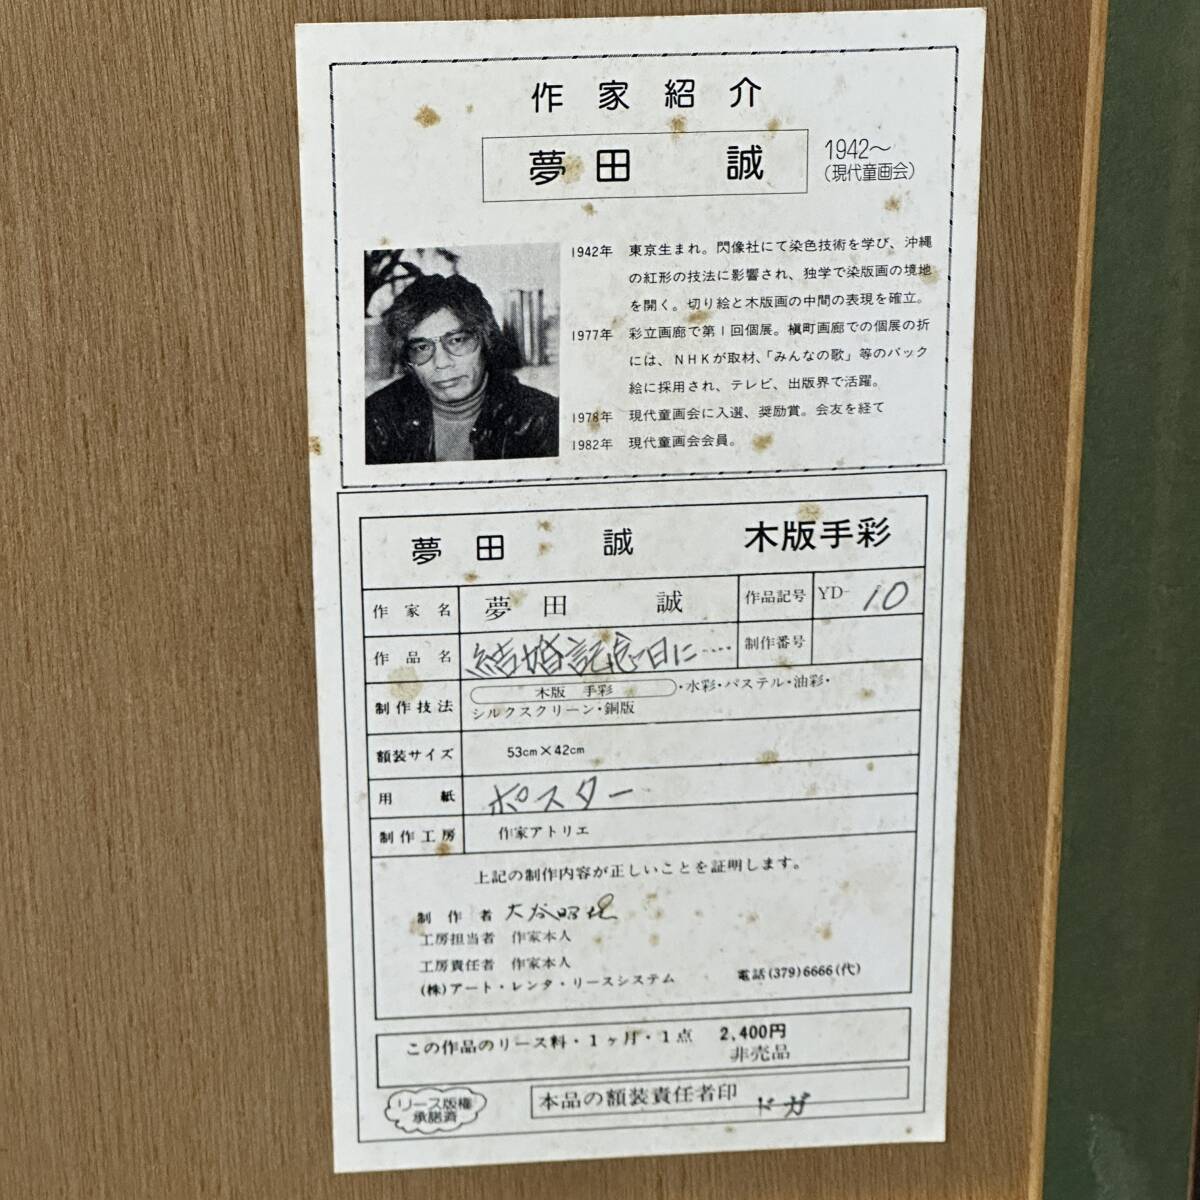 作家紹介
夢田 誠
1942〜
(現代童画会)
1942年 東京生まれ。閃像社にて染色技術を学び、沖縄
の紅形の技法に影響され、独学で染版画の境地
を開く。切り絵と木版画の中間の表現を確立。
1977年 彩立画廊で第1回個展。槇町画廊での個展の折
には、NHKが取材、「みんなの歌」等のバック
絵に採用され、テレビ、出版界で活躍。
1978年 現代童画会に入選、奨励賞。会友を経て
1982年 現代童画会会員。
夢田 誠 木版手彩
作家名 夢田 誠 作品記号 YD-10
作品名 結婚記念日に‥‥ 制作番号
制作技法 木版 手彩・水彩・パステル・油彩・
シルクスクリーン・銅版
額装サイズ 53cm×42cm
用紙 ポスター
制作工房 作家アトリエ
上記の制作内容が正しいことを証明します。
制作者 大谷昭
工房担当者 作家本人
工房責任者 作家本人
(株)アート・レンタ・リースシステム 電話(379)6666(代)
この作品のリース料・1ヶ月・1点 2,400円
非売品
リース版権
承諾済
本品の額装責任者印 ドガ